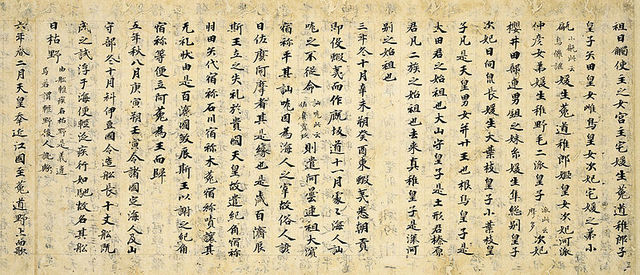 祖日觸使主之女宮主宅媛生菟道稚郎子
皇子矢田皇女雌鳥皇女次妃宅媛之弟小
甂媛生菟道稚郎姬皇女次妃河派
仲彦女弟媛生稚野毛二派皇子派此云摩多次妃
櫻井田部連男鉏之妹糸媛生隼総別皇子
次妃日向泉長媛生大葉枝皇子小葉枝皇
子凡是天皇男女并廿王也根鳥皇子是
大田君之始祖也大山守皇子是土形君榛原
君凡二族之始祖也去來真稚皇子是深河
別之始祖也
三年冬十月辛未朔癸酉東蝦夷悉朝貢
即役蝦夷而作厩坂道十一月處々海人訕
哤之不從命訕哤此云佐麼賣玖則遣阿曇連祖大濱
宿祢平其訕哤因為海人之宰故俗人諺
曰佐麼阿摩者其是縁也是歲百濟辰
斯王立之失礼於貴國天皇故遣紀角宿祢
羽田矢代宿祢石川宿祢木菟宿祢嘖讓其
无礼狀由是百濟國殺辰斯王以謝之紀角
宿祢等便立阿花為王而歸
五年秋八月庚寅朔壬寅令諸國定海人及山
守部冬十月科伊豆國令造船長十丈船既
成之試浮于海便輕泛疾行如馳故名其船
曰枯野由船輕疾名枯野是義違焉若謂輕野後人訛歟
六年春二月天皇幸近江國至菟道野上而歌